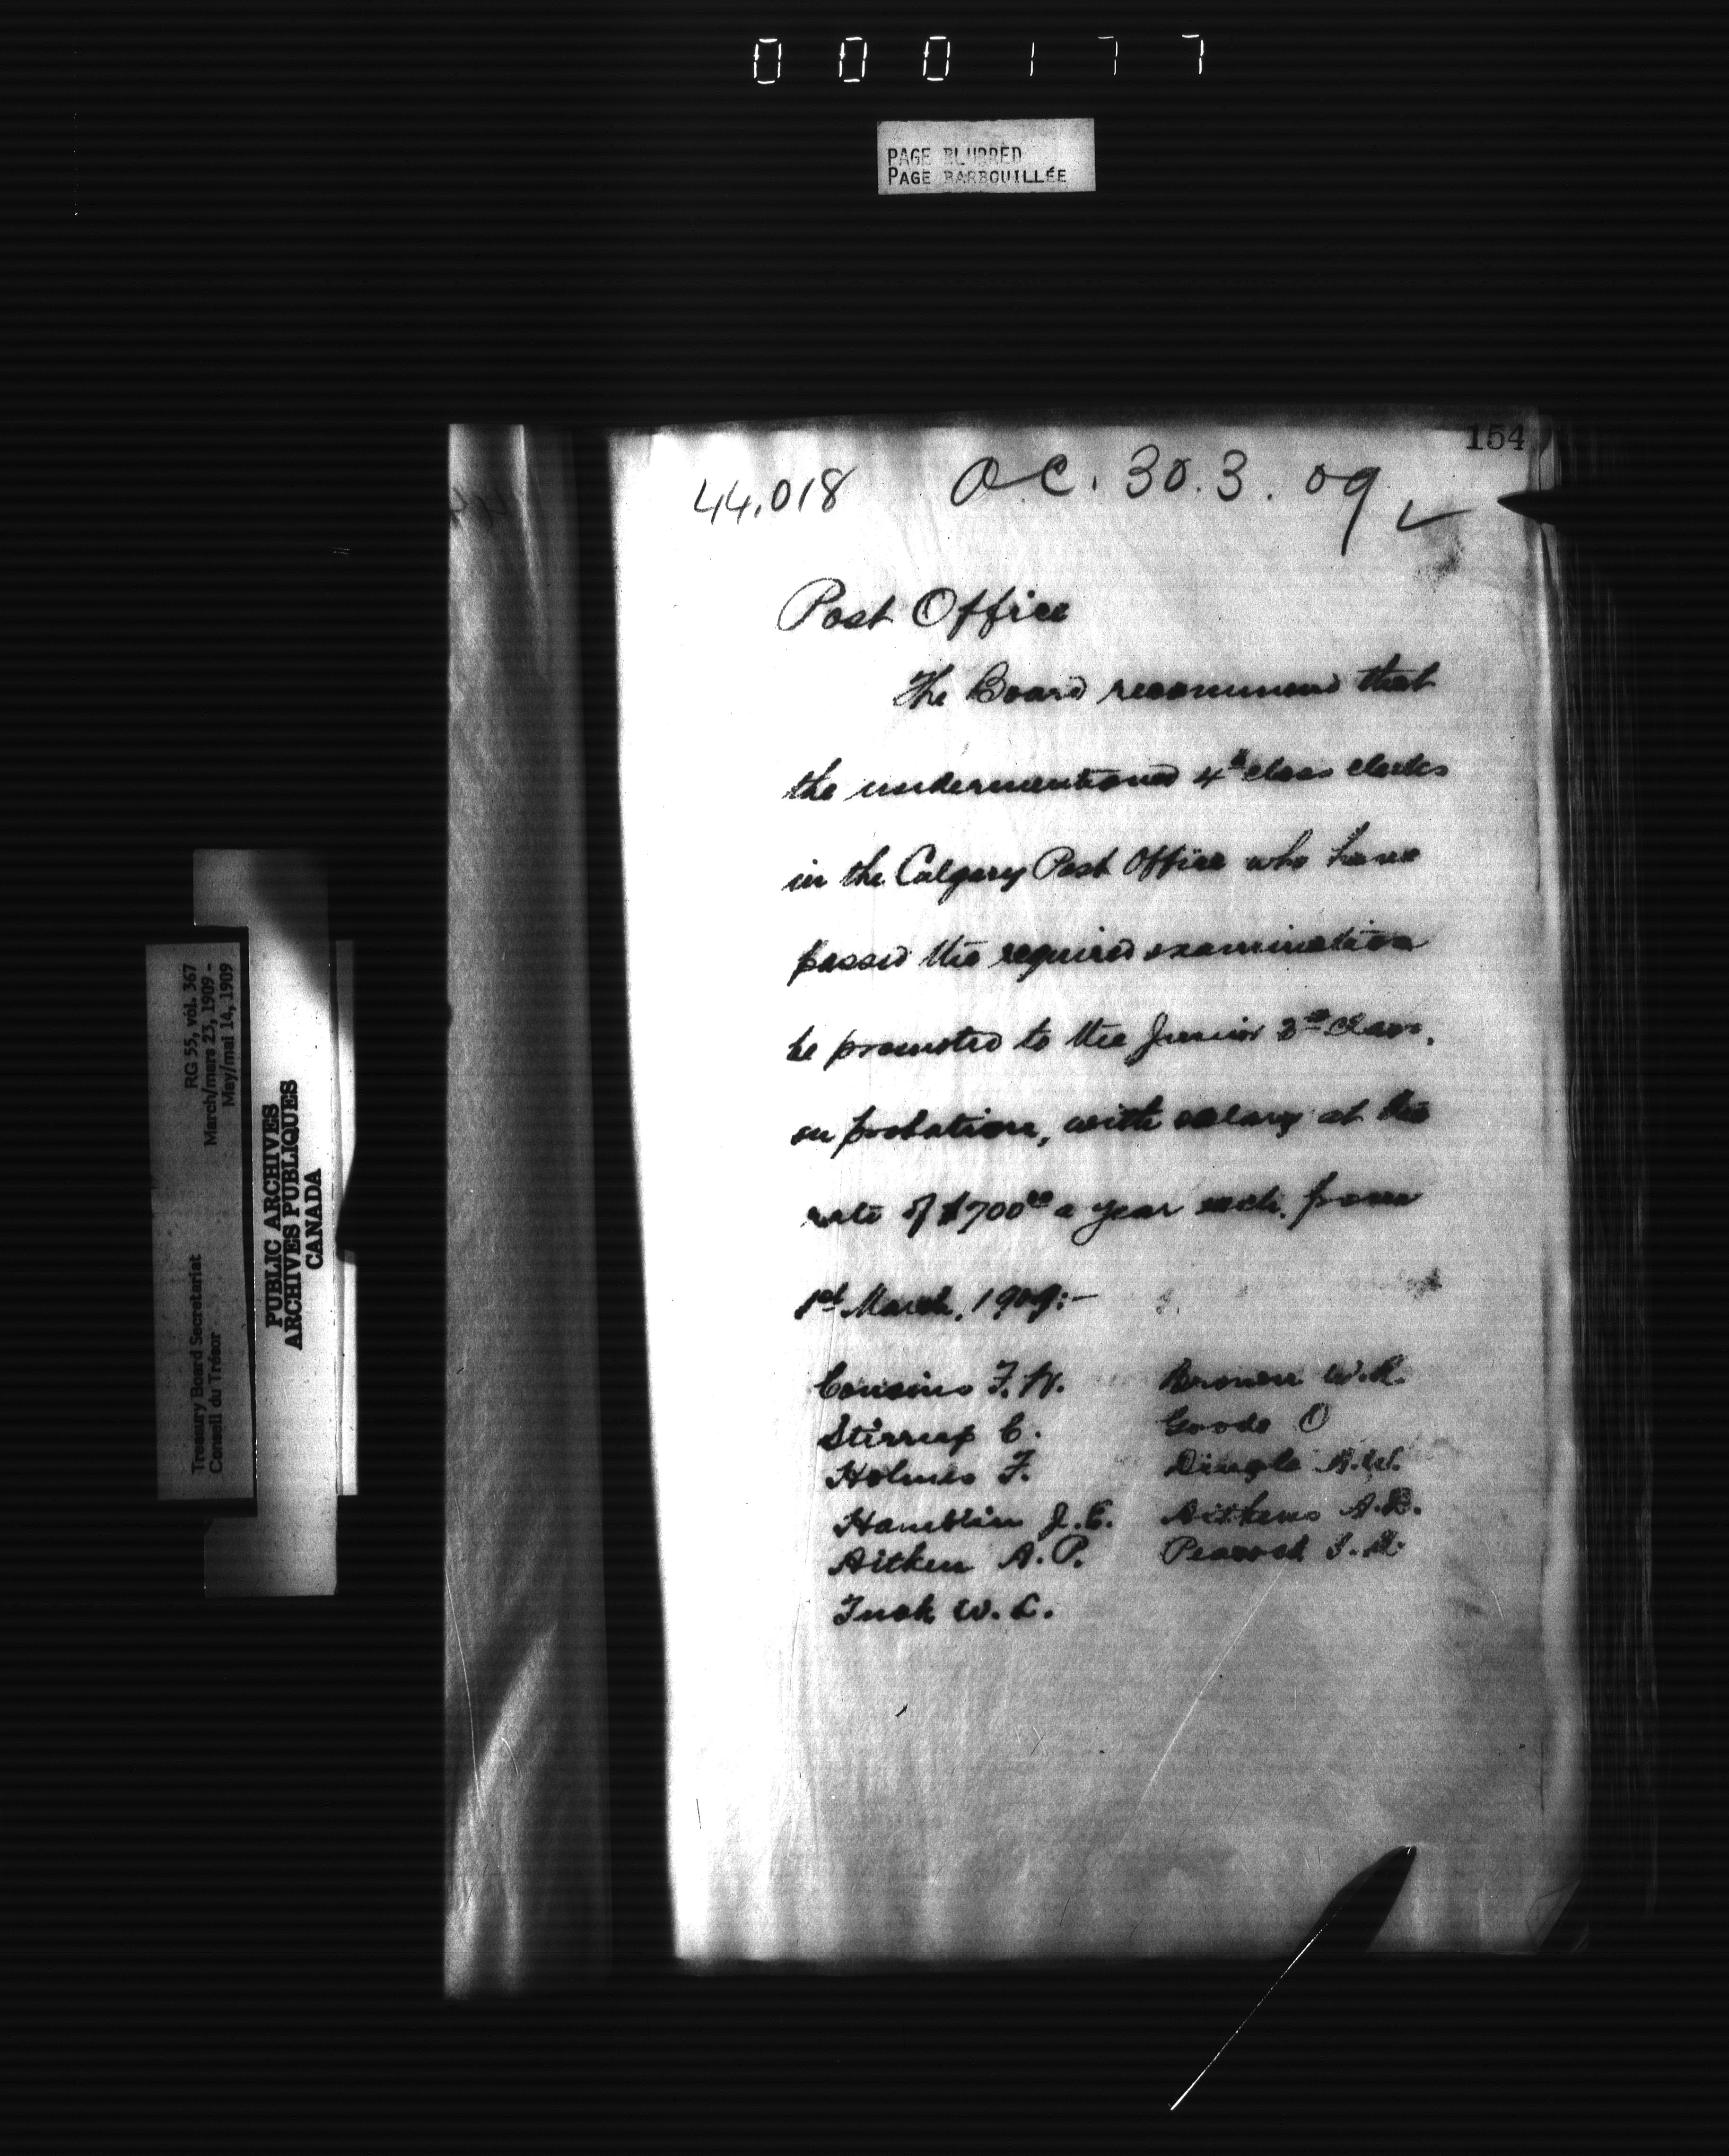 000177
PAGE BLURRED
PAGE BARBOUILLÉE
154
44,018 O C. 30.3.09
Post Office
The Board recommend that
the undermentioned 4th class clerks
in the Calgary Post Office who have
passed the required examination
be promoted to the Junior 3rd class,
on probation, with salary at the
rate of $700.00 a year each, from
1st March, 1909:—
Cousins F. W. Brown W.R.
Stirrup C. Goode O
Holmes F. Dingle
Hamblin J.E. Aitkens A.B.
Aitken A.P. Peacock
W.L.
RG 55, vol. 367
March/mars 23, 1909 -
May/mai 14, 1909
Treasury Board Secretariat
Conseil du Trésor
PUBLIC ARCHIVES
ARCHIVES PUBLIQUES
CANADA